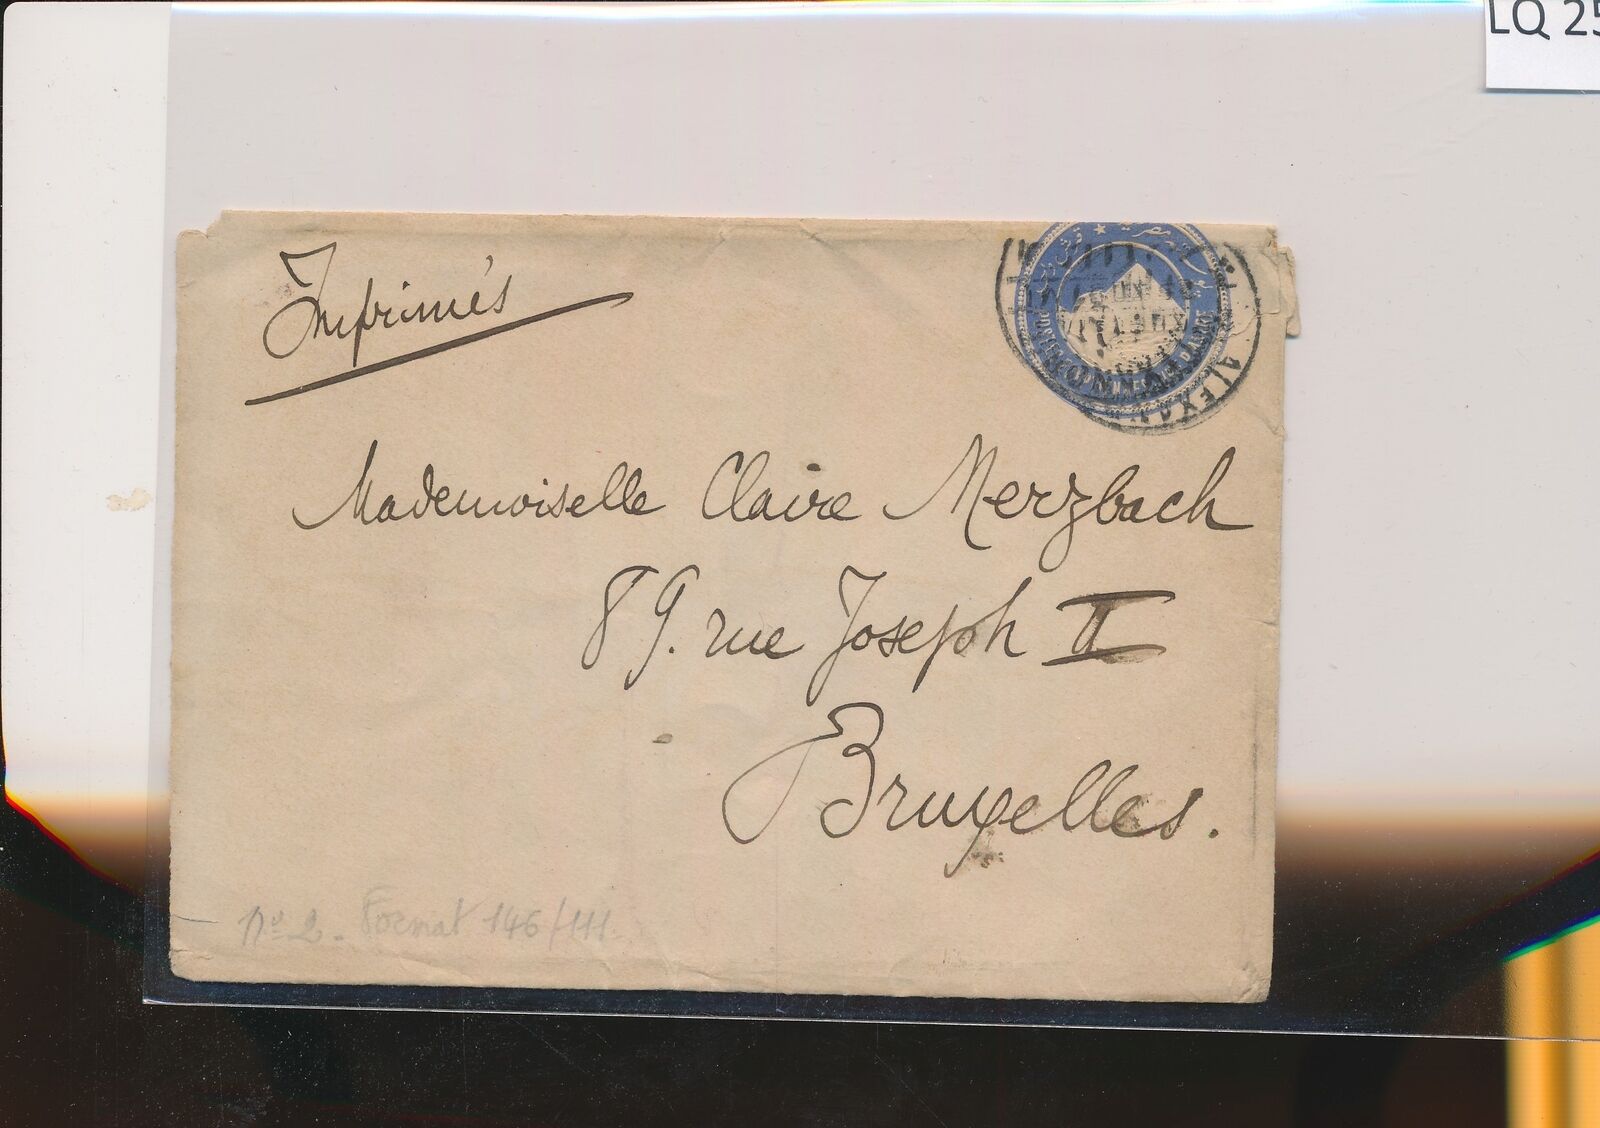 LQ 25
Imprimés
POSTES EGYPTIENNES
ALEXAN
Mademoiselle Claire Merzbach
89. rue Joseph II
Bruxelles.
No 2 - Format 146/111